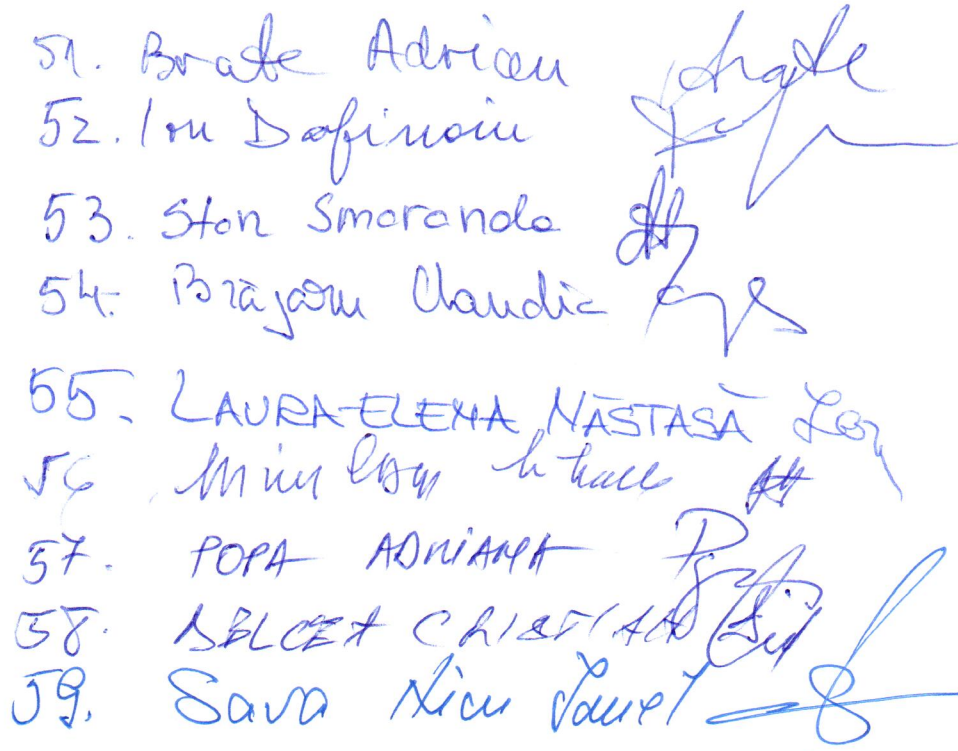 51. Brate Adrian Brate
52. Ion Dafinoiu
53. Stan Smaranda
54. Brăjaru Claudia
55. LAURA-ELENA NĂSTASĂ
56
57. POPA ADRIANA
58. BELCEA CRISTIAN
59. Sava Nicu Ionel